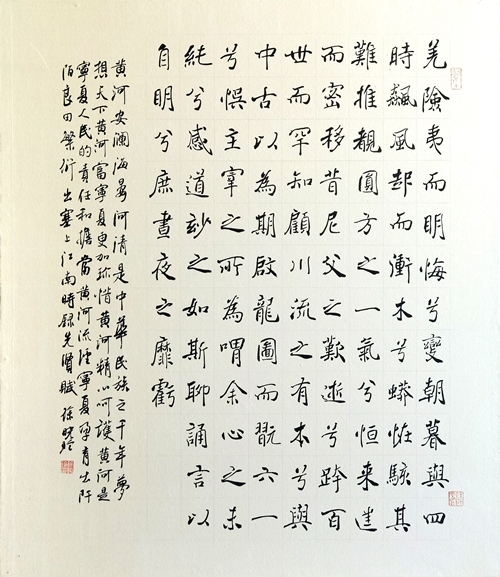 羌險夷而明悔兮變朝暮與四
時飆風起而衝木兮蟒怪駭其
難推觀圓方之一氣兮恒来進
而密移昔尼父之歎逝兮跨百
世而罕知顧川流之有本兮與
中古以為期啟龍圖而翫六一
兮悞主宰之所為喟余心之未
純兮感道玅之如斯聊誦言以
自明兮庶晝夜之靡虧
黄河安澜海晏河清是中華民族之千年夢
想天下黄河富寧夏更加珍惜黄河精心呵護黄河是
寧夏人民的責任和擔當黄河流經寧夏孕育出阡
陌良田繁衍出塞上江南時録先賢賦徐